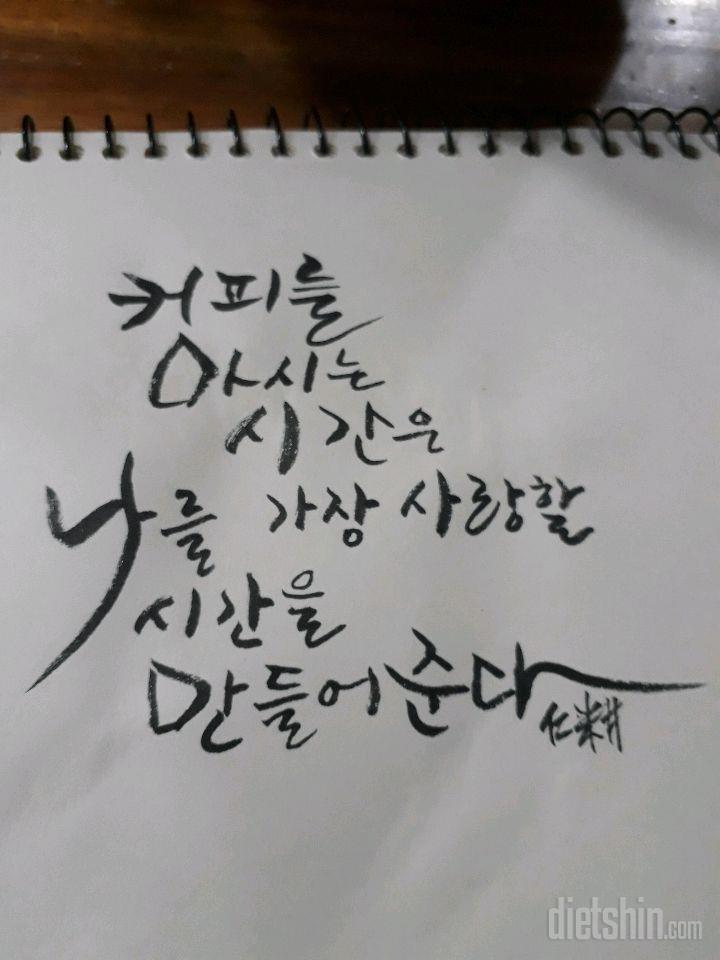 커피를
마시는
시간은
나를 가장 사랑할
시간을
만들어준다
仁耕
dietshin.com